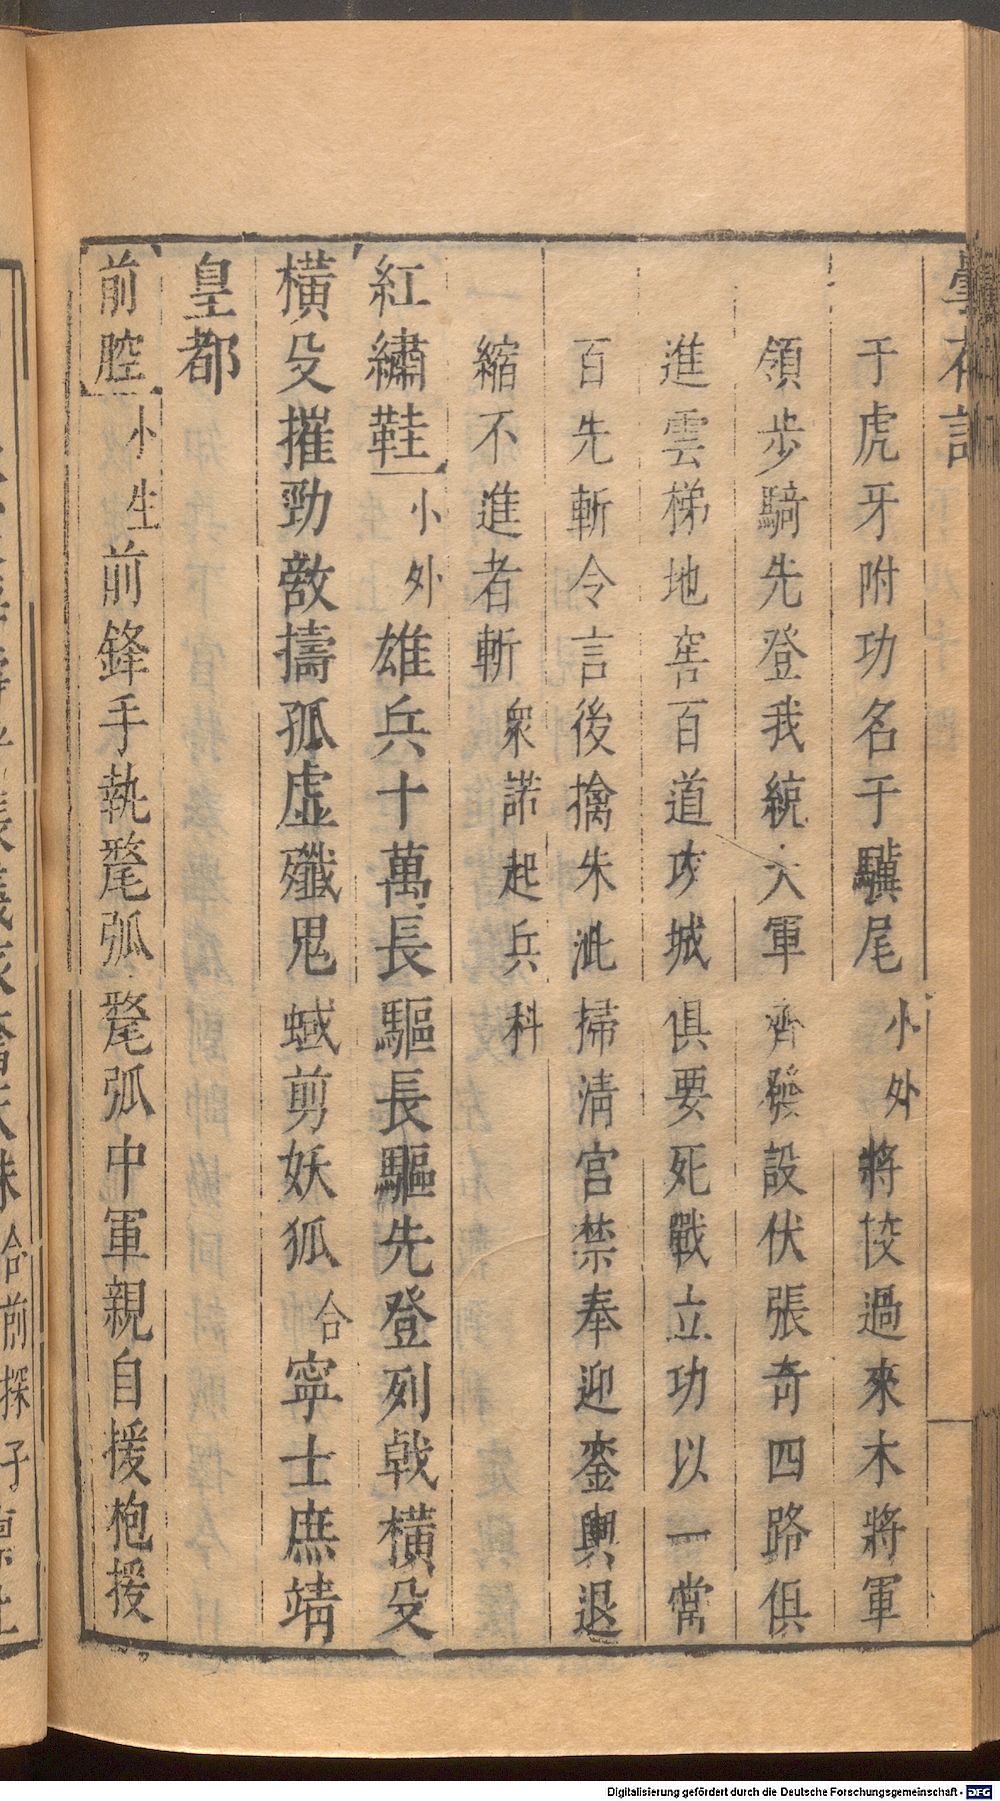 于虎牙附功名于驥尾小外將校過來木將軍
領步騎先登我統大軍齊發設伏張奇四路俱
進雲梯地窖百道攻城俱要死戰立功以一當
百先斬令言後擒朱泚掃清宮禁奉迎鑾輿退
縮不進者斬衆諾起兵科
紅繡鞋小外雄兵十萬長驅長驅先登列戟橫殳
橫殳摧勁敵擣孤虛殲鬼蜮剪妖狐合寧士庶靖
皇都
前腔小生前鋒手執蝥弧蝥弧中軍親自援枹援
Digitalisierung gefördert durch die Deutsche Forschungsgemeinschaft - DFG